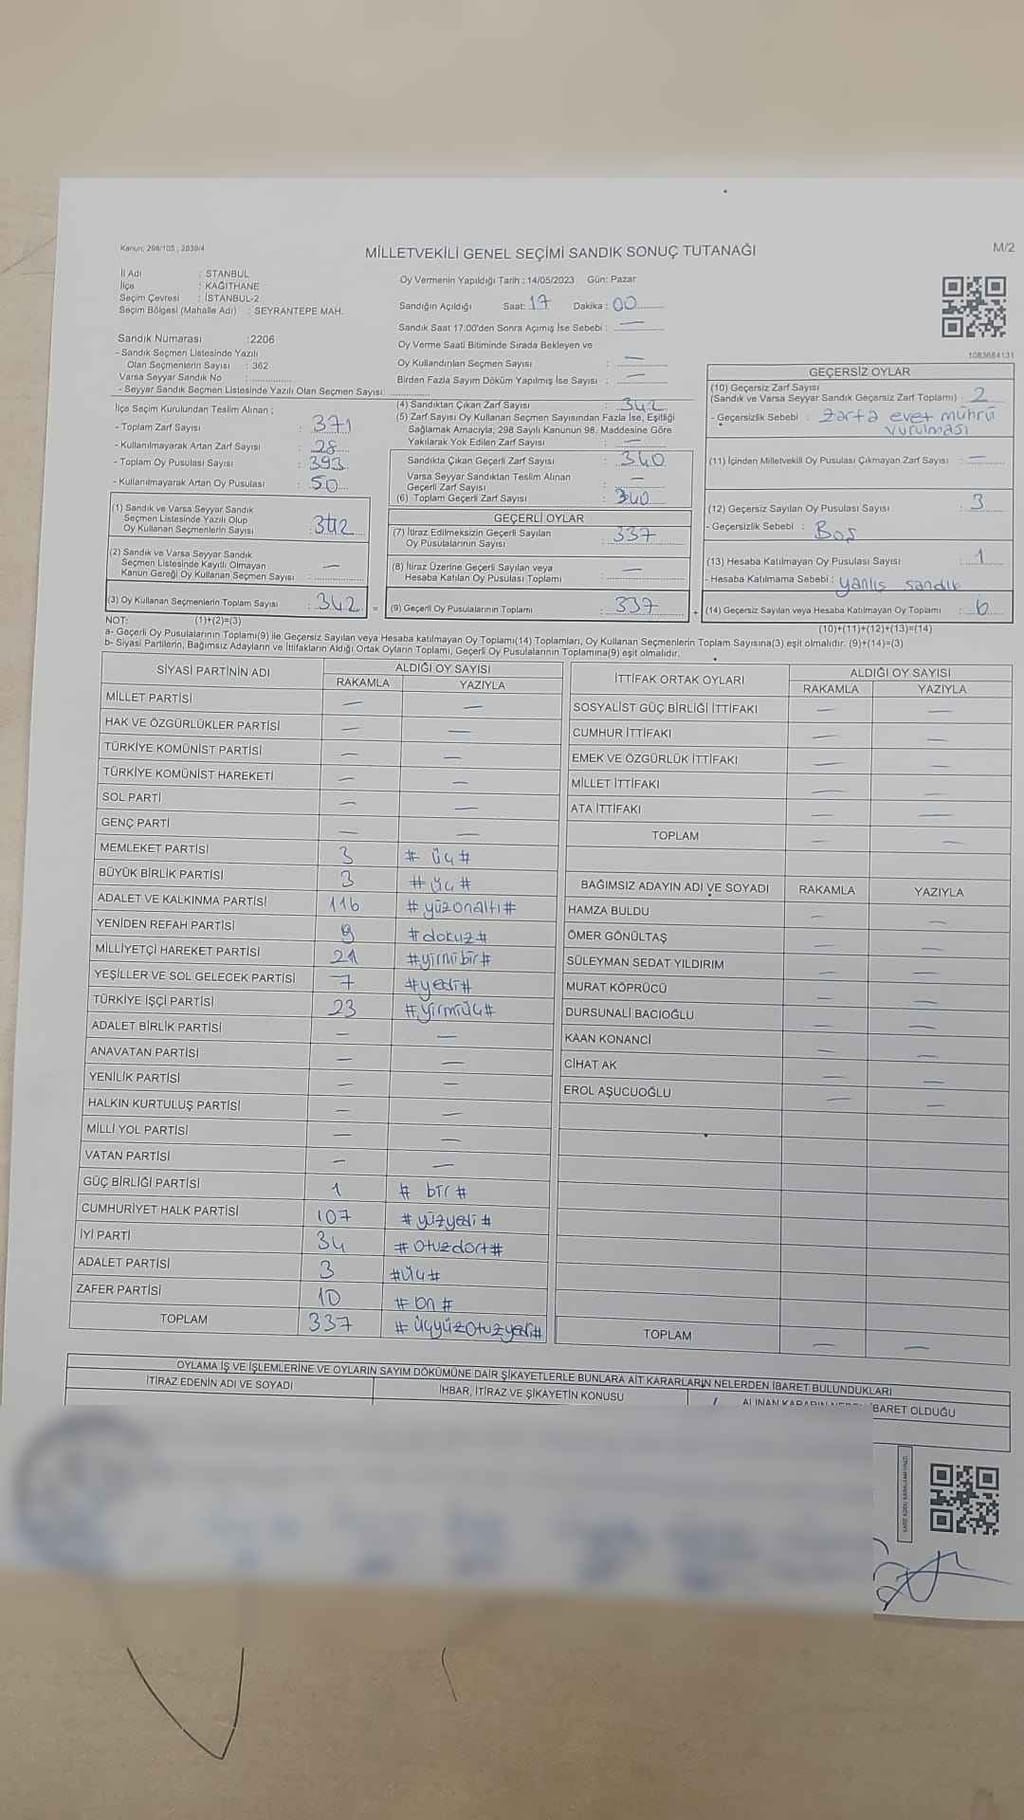 Kanun: 298/105 ; 2839/4
MİLLETVEKİLİ GENEL SEÇİMİ SANDIK SONUÇ TUTANAĞI
M/2
İl Adı : İSTANBUL
İlçe : KAĞITHANE
Seçim Çevresi : İSTANBUL-2
Seçim Bölgesi (Mahalle Adı) : SEYRANTEPE MAH.
Sandık Numarası :2206
- Sandık Seçmen Listesinde Yazılı
Olan Seçmenlerin Sayısı : 362
Varsa Seyyar Sandık No :
- Seyyar Sandık Seçmen Listesinde Yazılı Olan Seçmen Sayısı:
İlçe Seçim Kurulundan Teslim Alınan ;
- Toplam Zarf Sayısı : 371
- Kullanılmayarak Artan Zarf Sayısı : 28
- Toplam Oy Pusulası Sayısı : 393
- Kullanılmayarak Artan Oy Pusulası : 50
(1) Sandık ve Varsa Seyyar Sandık
Seçmen Listesinde Yazılı Olup
Oy Kullanan Seçmenlerin Sayısı : 342
(2) Sandık ve Varsa Seyyar Sandık
Seçmen Listesinde Kayıtlı Olmayan
Kanun Gereği Oy Kullanan Seçmen Sayısı : —
(3) Oy Kullanan Seçmenlerin Toplam Sayısı : 342 =
Oy Vermenin Yapıldığı Tarih : 14/05/2023 Gün: Pazar
Sandığın Açıldığı Saat: 17 Dakika : 00
Sandık Saat 17.00'den Sonra Açımış İse Sebebi : —
Oy Verme Saati Bitiminde Sırada Bekleyen ve
Oy Kullandırılan Seçmen Sayısı : —
Birden Fazla Sayım Döküm Yapılmış İse Sayısı : —
(4) Sandıktan Çıkan Zarf Sayısı : 342
(5) Zarf Sayısı Oy Kullanan Seçmen Sayısından Fazla İse, Eşitliği
Sağlamak Amacıyla; 298 Sayılı Kanunun 98. Maddesine Göre
Yakılarak Yok Edilen Zarf Sayısı : —
Sandıkta Çıkan Geçerli Zarf Sayısı : 340
Varsa Seyyar Sandıktan Teslim Alınan
Geçerli Zarf Sayısı : —
(6) Toplam Geçerli Zarf Sayısı : 340
GEÇERLİ OYLAR
(7) İtiraz Edilmeksizin Geçerli Sayılan
Oy Pusulalarının Sayısı : 337
(8) İtiraz Üzerine Geçerli Sayılan veya
Hesaba Katılan Oy Pusulası Toplamı : —
(9) Geçerli Oy Pusulalarının Toplamı : 337 +
1083684131
GEÇERSİZ OYLAR
(10) Geçersiz Zarf Sayısı
(Sandık ve Varsa Seyyar Sandık Geçersiz Zarf Toplamı) : 2
- Geçersizlik Sebebi : Zarfa evet mührü
vurulması
(11) İçinden Milletvekili Oy Pusulası Çıkmayan Zarf Sayısı : —
(12) Geçersiz Sayılan Oy Pusulası Sayısı : 3
- Geçersizlik Sebebi : Boş
(13) Hesaba Katılmayan Oy Pusulası Sayısı : 1
- Hesaba Katılmama Sebebi : yanlış sandık
(14) Geçersiz Sayılan veya Hesaba Katılmayan Oy Toplamı : 6
NOT: (1)+(2)=(3)
(10)+(11)+(12)+(13)=(14)
a- Geçerli Oy Pusulalarının Toplamı(9) ile Geçersiz Sayılan veya Hesaba katılmayan Oy Toplamı(14) Toplamları, Oy Kullanan Seçmenlerin Toplam Sayısına(3) eşit olmalıdır. (9)+(14)=(3)
b- Siyasi Partilerin, Bağımsız Adayların ve İttifakların Aldığı Ortak Oyların Toplamı, Geçerli Oy Pusulalarının Toplamına(9) eşit olmalıdır.
SİYASİ PARTİNİN ADI ALDIĞI OY SAYISI
RAKAMLA YAZIYLA
MİLLET PARTİSİ — —
HAK VE ÖZGÜRLÜKLER PARTİSİ — —
TÜRKİYE KOMÜNİST PARTİSİ — —
TÜRKİYE KOMÜNİST HAREKETİ — —
SOL PARTİ — —
GENÇ PARTİ — —
MEMLEKET PARTİSİ 3 # üç #
BÜYÜK BİRLİK PARTİSİ 3 # üç #
ADALET VE KALKINMA PARTİSİ 116 # yüzonaltı #
YENİDEN REFAH PARTİSİ 9 # dokuz #
MİLLİYETÇİ HAREKET PARTİSİ 21 # yirmibir #
YEŞİLLER VE SOL GELECEK PARTİSİ 7 # yedi #
TÜRKİYE İŞÇİ PARTİSİ 23 # yirmiüç #
ADALET BİRLİK PARTİSİ — —
ANAVATAN PARTİSİ — —
YENİLİK PARTİSİ — —
HALKIN KURTULUŞ PARTİSİ — —
MİLLİ YOL PARTİSİ — —
VATAN PARTİSİ — —
GÜÇ BİRLİĞİ PARTİSİ 1 # bir #
CUMHURİYET HALK PARTİSİ 107 # yüzyedi #
İYİ PARTİ 34 # Otuzdört #
ADALET PARTİSİ 3 # üç #
ZAFER PARTİSİ 10 # on #
TOPLAM 337 # üçyüzotuzyedi #
İTTİFAK ORTAK OYLARI ALDIĞI OY SAYISI
RAKAMLA YAZIYLA
SOSYALİST GÜÇ BİRLİĞİ İTTİFAKI — —
CUMHUR İTTİFAKI — —
EMEK VE ÖZGÜRLÜK İTTİFAKI — —
MİLLET İTTİFAKI — —
ATA İTTİFAKI — —
TOPLAM — —
BAĞIMSIZ ADAYIN ADI VE SOYADI RAKAMLA YAZIYLA
HAMZA BULDU — —
ÖMER GÖNÜLTAŞ — —
SÜLEYMAN SEDAT YILDIRIM — —
MURAT KÖPRÜCÜ — —
DURSUNALİ BACIOĞLU — —
KAAN KONANCİ — —
CİHAT AK — —
EROL AŞUCUOĞLU — —
TOPLAM — —
OYLAMA İŞ VE İŞLEMLERİNE VE OYLARIN SAYIM DÖKÜMÜNE DAİR ŞİKAYETLERLE BUNLARA AİT KARARLARIN NELERDEN İBARET BULUNDUKLARI
İTİRAZ EDENİN ADI VE SOYADI İHBAR, İTİRAZ VE ŞİKAYETİN KONUSU ALINAN KARARIN NEDEN İBARET OLDUĞU